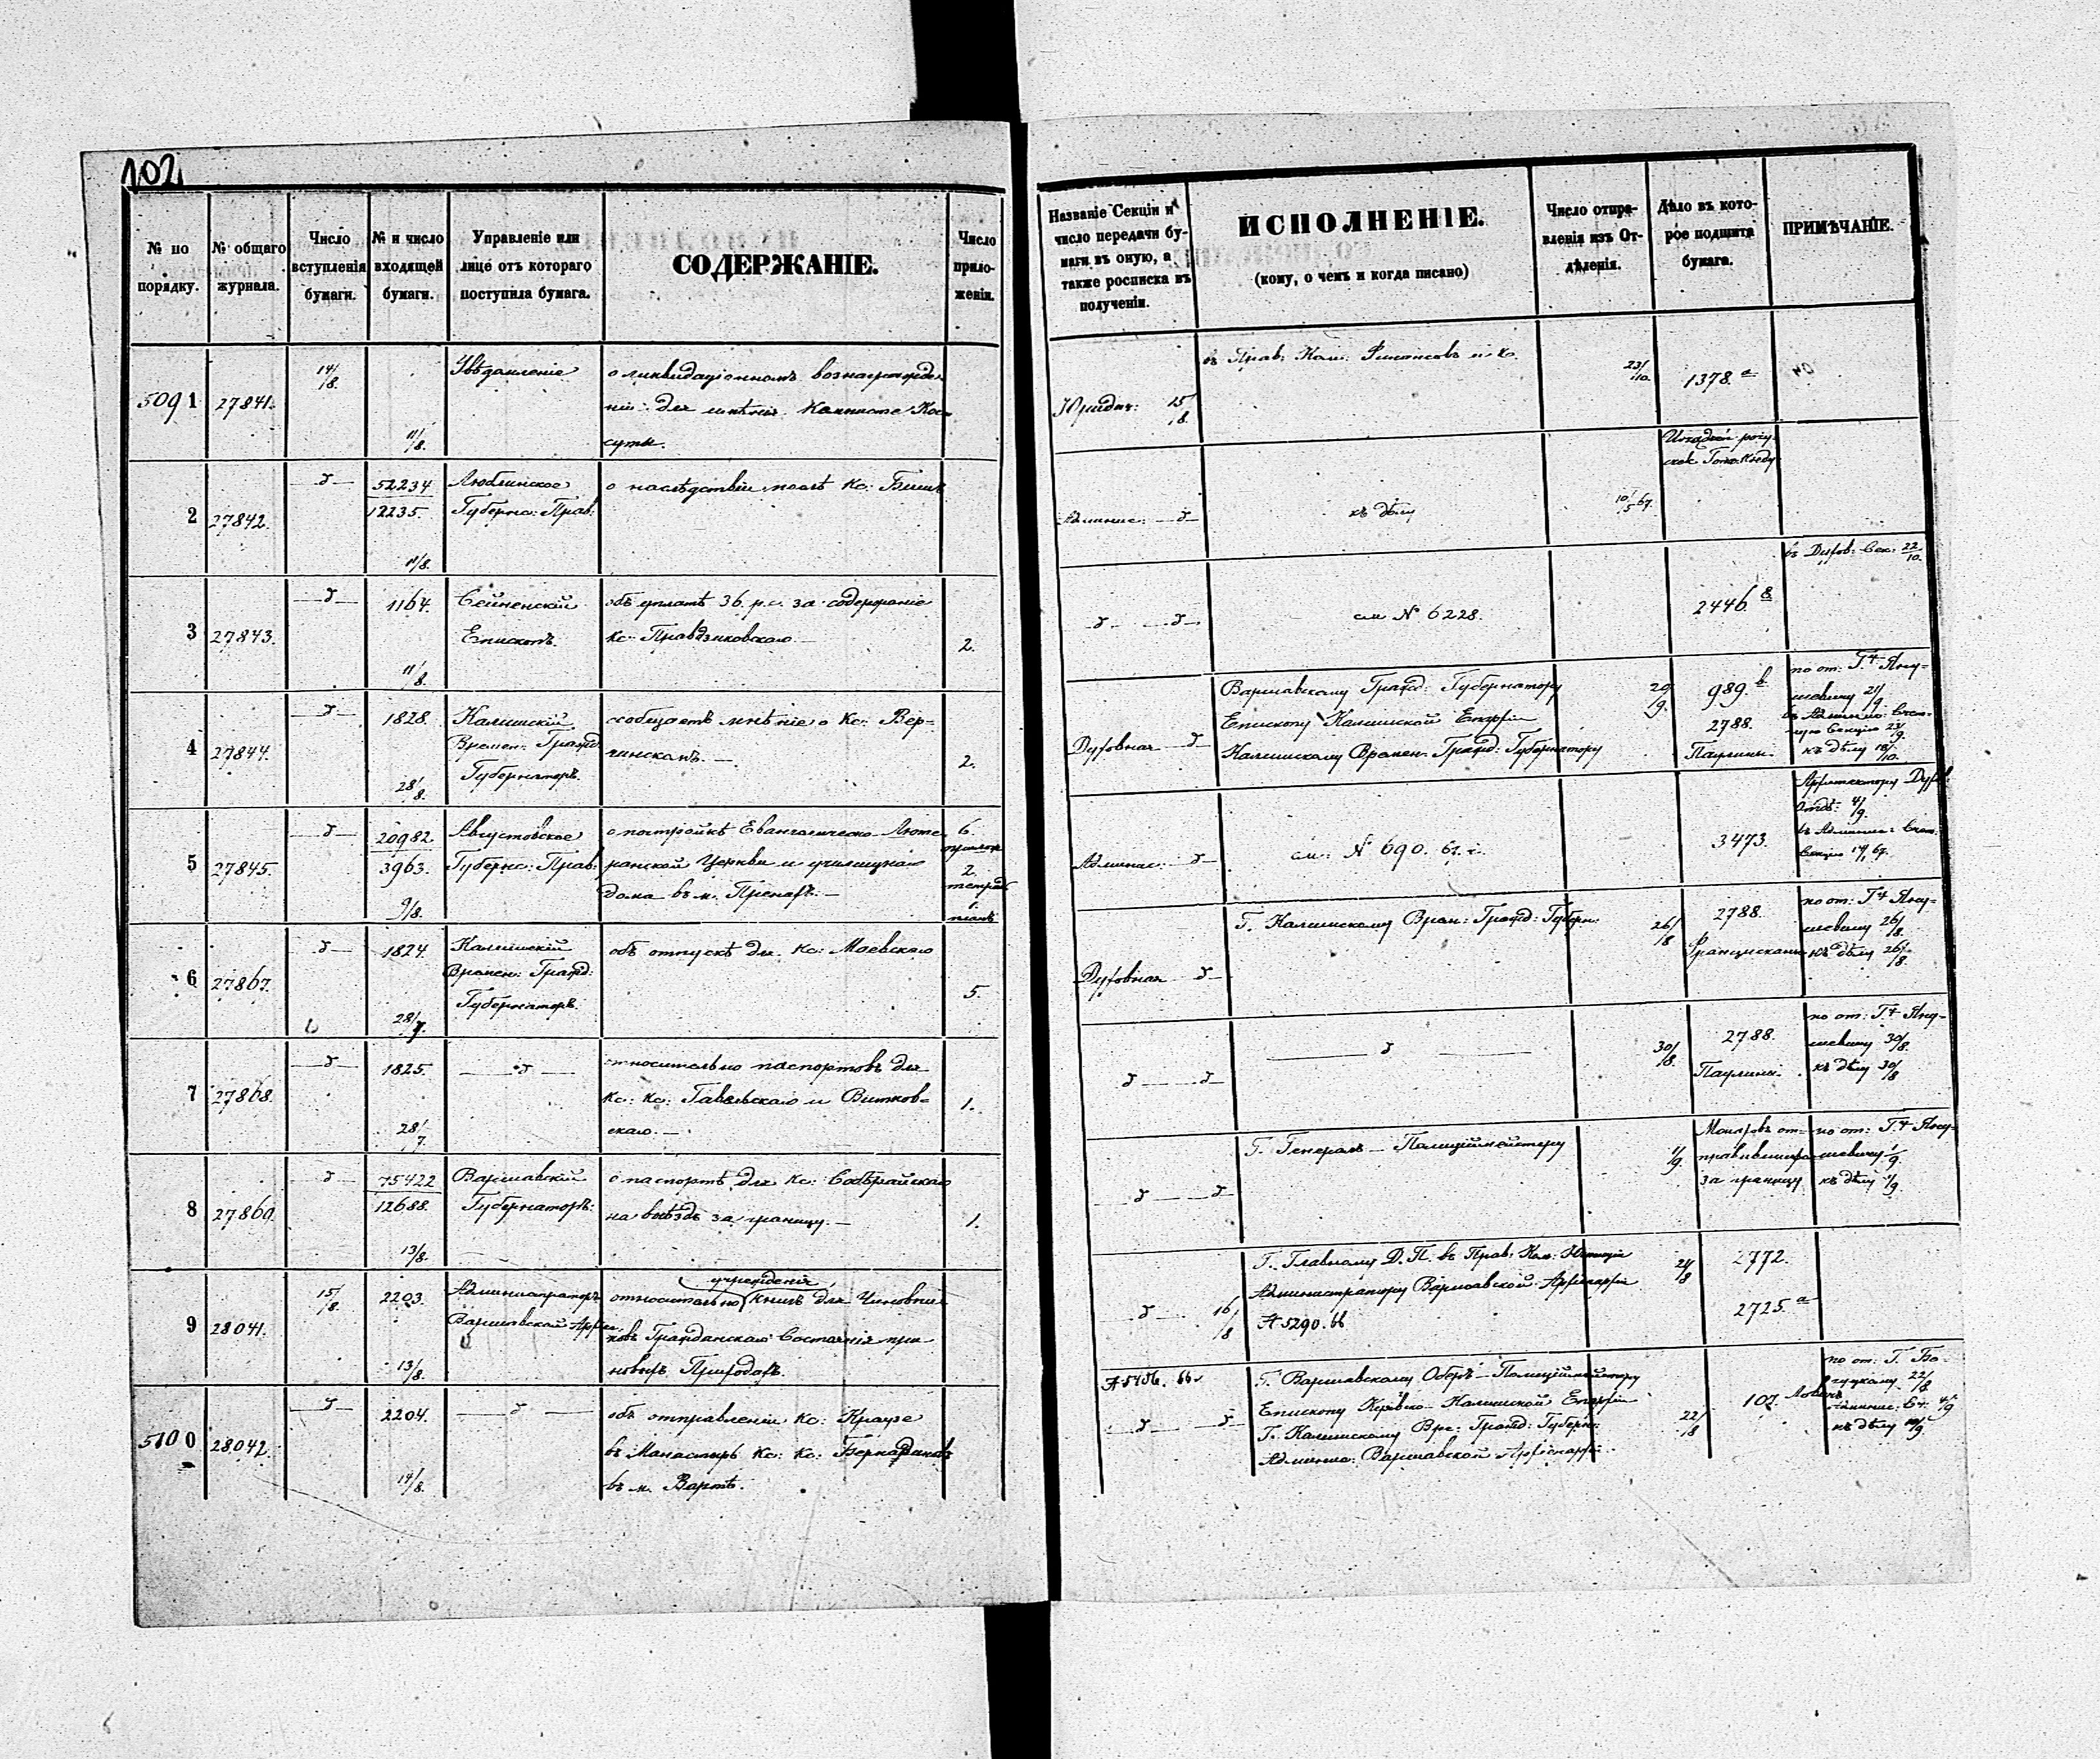 102
№ по порядку.
№ общаго журнала.
Число вступленія бумаги.
№ и число входящей бумаги.
Управленіе или лице отъ котораго поступила бумага.
СОДЕРЖАНІЕ.
Число приложеніи.
5091
27841.
14/8.
11/8.
Увѣдомленіе
о ликвидаціонномъ вознагражде-
ніи для имѣнія
2
27842.
52234
12235.
11/8.
Люблинское
Губернс: Прав:
о наслѣдствѣ послѣ Кс:
3
27843.
1164.
11/8.
Сейненскій
Епископъ.
объ уплатѣ 36. р.с. за содержаніе
Кс: Правдзиковскаго.
2.
4
27844.
1828.
28/8.
Калишскій
Времен: Гражд:
Губернаторъ.
сообщаетъ мнѣніе о Кс: Вер-
чинскомъ. —
2.
5
27845.
20982.
3963.
9/8.
Августовское
Губернс: Прав:
о постройкѣ Евангелическо-Люте-
ранской Церкви и училищнаго
дома въ м. Пренахъ. —
6.
прилож
2.
тетрад
1.
планъ
6
27867.
1824.
28/7.
Калишскій
Времен: Гражд:
Губернаторъ.
объ отпускѣ для Кс: Маевскаго
5.
7
27868.
1825.
28/7.
относительно паспортовъ для
Кс: Кс: Гавельскаго и Витков-
скаго. —
1.
8
27869.
75422
12688.
13/8.
Варшавскій
Губернаторъ:
о паспортѣ для Кс:
на выѣздъ за границу. —
1.
9
28041.
15/8.
2203.
13/8.
Администраторъ
Варшавской Архіеп.
учрежденія
относительно книгъ для Чиновни-
ковъ Гражданскаго Состоянія при
новыхъ Приходахъ.
5100
28042.
2204.
14/8.
объ отправленіи Кс: Краузе
въ Монастырь Кс: Кс: Бернардиновъ
въ м. Вартѣ.
Названіе Секціи и число передачи бумаги въ оную, а также росписка въ полученіи.
ИСПОЛНЕНІЕ.
(кому, о чемъ и когда писано)
Число отправленія изъ Отдѣленія.
Дѣло въ которое подшита бумага.
ПРИМѢЧАНІЕ.
Юридич: 15/8.
въ Прав: Ком: Финансовъ
23/10.
1378. а
Админис:
къ дѣлу
10/5 67.
см № 6228.
2446
въ Духов: Сек: 22/10.
Духовная
Варшавскому Гражд: Губернатору
Епископу Калишской Епархіи
Калишскому Времен: Гражд: Губернатору
29/9.
989. b
2788.
Паулины
по от: Г. Яку-
шевичу 21/9.
къ дѣлу 18/10.
Админис:
см: № 690. 67. г.
3473.
Архитектору Духов
Отдѣ: 4/9.
Духовная
Г. Калишскому Врем: Гражд: Губерн:
26/8
2788.
Францискане
по от: Г. Яку-
шевичу 26/8.
къ дѣлу 26/8.
30/8.
2788.
Паулины
по от: Г. Яку-
шевичу 30/8.
къ дѣлу 30/8
Г. Генералъ-Полиціймейстеру
1/9.
Монаховъ от-
правившихся
за границу
по от: Г. Яку-
шевичу 1/9.
къ дѣлу 1/9.
16/8
Г. Главному Д. П. въ Прав: Ком: Юстиціи
Администратору Варшавской Архіепархіи
А 5290. 66
24/8
2772.
2725. а
А 5456. 66
Г. Варшавскому Оберъ-Полиціймейстеру
Епископу Куявско-Калишской Епархіи
Г. Калишскому Вре: Гражд: Губерн:
Админис: Варшавской Архіепархіи.
22/8
107.
по от: Г. Бо-
22/8
къ дѣлу 10/9